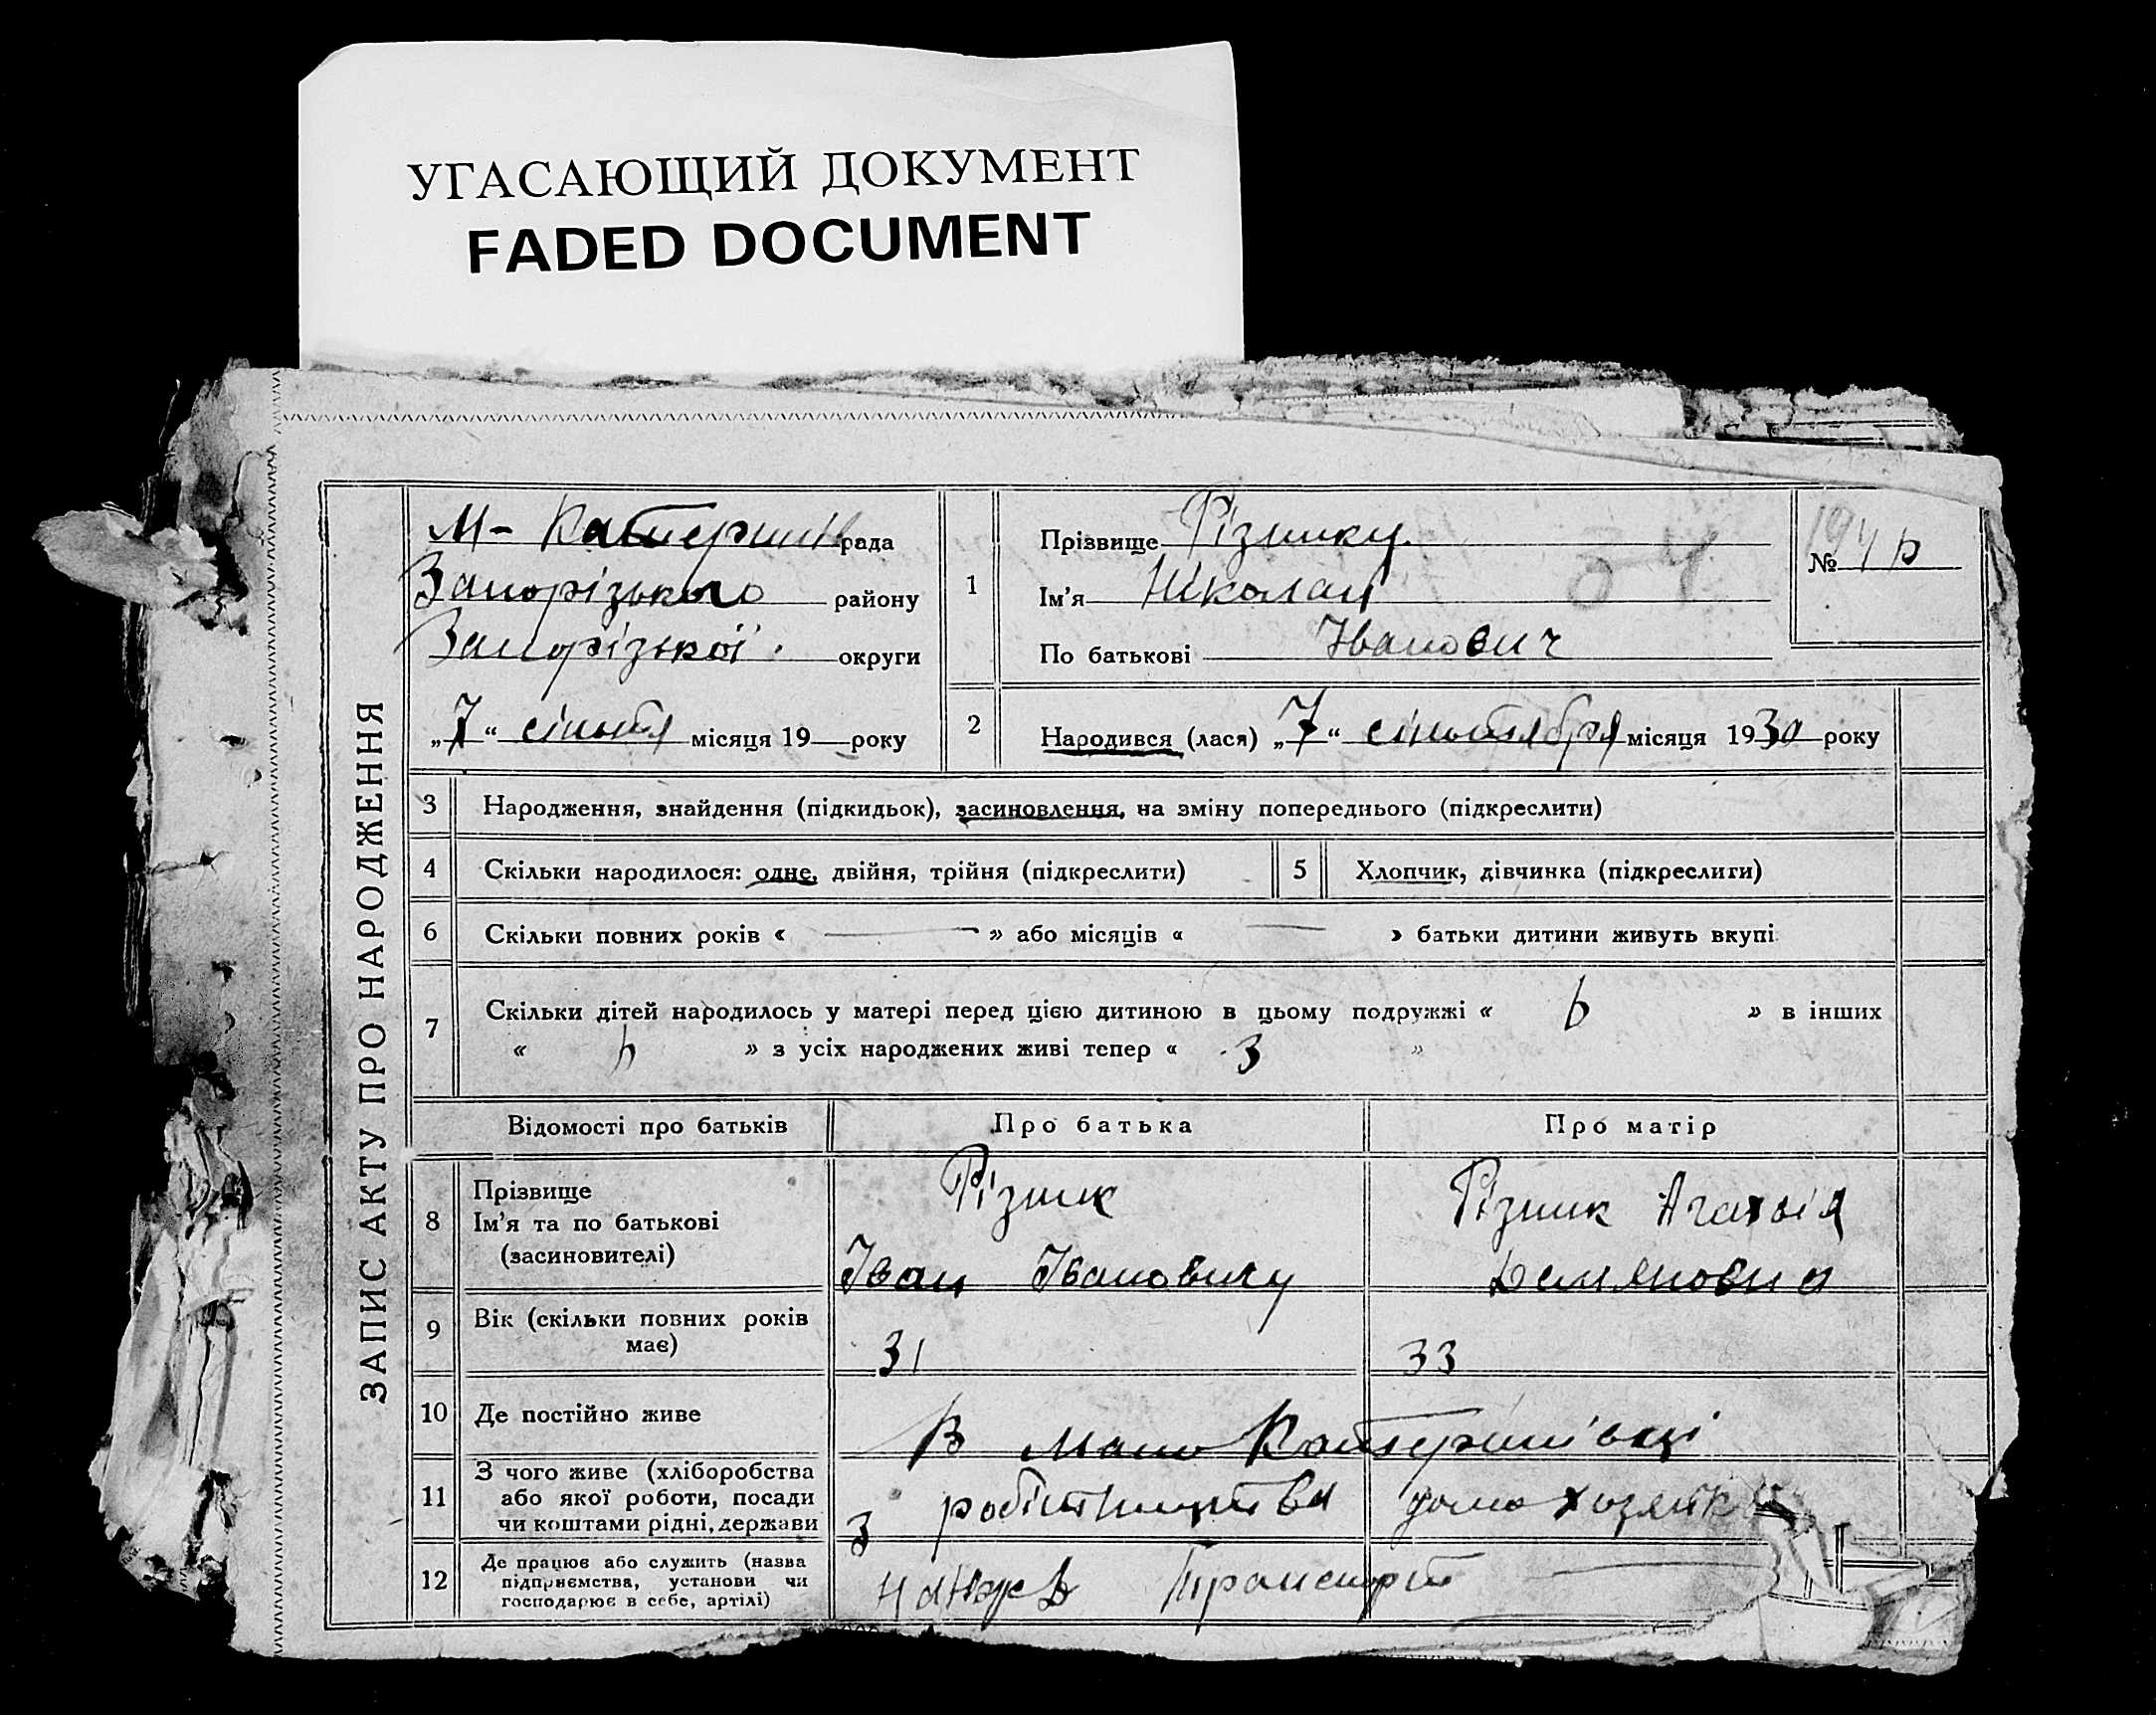 УГАСАЮЩИЙ ДОКУМЕНТ
FADED DOCUMENT
ЗАПИС АКТУ ПРО НАРОДЖЕННЯ
М- Катеринів рада
Запорізького району
Запорізької округи
„7“ сінтя місяця 19 року
1
Прізвище Різнику
Ім'я Ніколай
По батькові Іванович
№
2
Народився (лася) „7“ сінтября місяця 1930 року
3 Народження, знайдення (підкидьок), засиновлення, на зміну попереднього (підкреслити)
4 Скільки народилося: одне, двійня, трійня (підкреслити)
5 Хлопчик, дівчинка (підкреслити)
6 Скільки повних років « » або місяців « » батьки дитини живуть вкупі
7 Скільки дітей народилось у матері перед цією дитиною в цьому подружжі « » в інших
« » з усіх народжених живі тепер « 3 »
Відомості про батьків Про батька Про матір
8 Прізвище
Ім'я та по батькові
(засиновителі)
Різник
Іван Івановичу
Різник Агафія
Демяновна
9 Вік (скільки повних років
має)
31 33
10 Де постійно живе
В Мало Катеринівці
11 З чого живе (хліборобства
або якої роботи, посади
чи коштами рідні, держави
З робітництва
12 Де працює або служить (назва
підприємства, установи чи
господарює в себе, артілі)
Транспорт